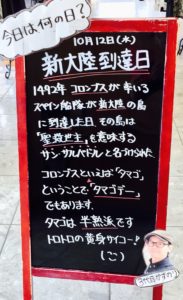 今日は何の日?
10月12日(水)
新大陸到達日
1492年 コロンブスが率いる
スペイン船隊が新大陸の島
に到達した日。その島は
「聖救世主」を意味する
サン・サルバドルと名づけられた
コロンブスといえば「タマゴ」
ということで「タマゴデー」
でもあります。
タマゴは半熟派です
トロトロの黄身サイコー!